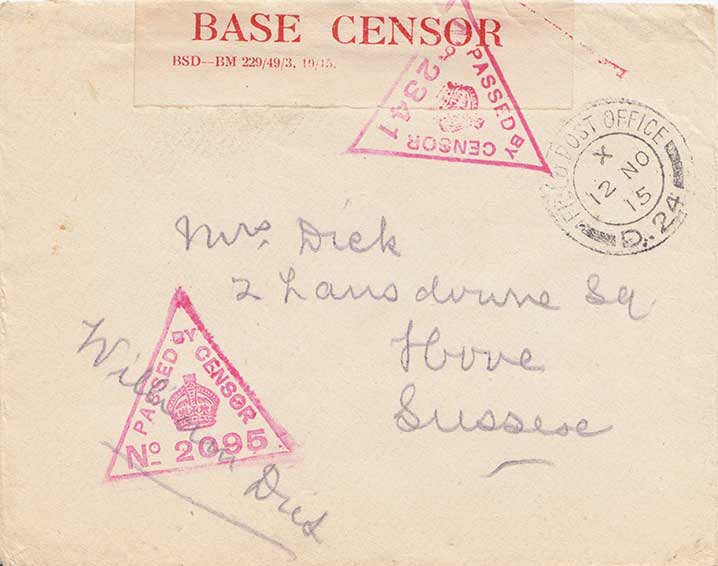 BASE CENSOR
BSD—BM 229/49/3. 19/15.
PASSED BY CENSOR
No 2341
FIELD POST OFFICE
X
12 NO
15
D. 24
Mrs. Dick
2 Lansdowne Sq
Hove
Sussex
PASSED BY CENSOR
No 2095
Dick